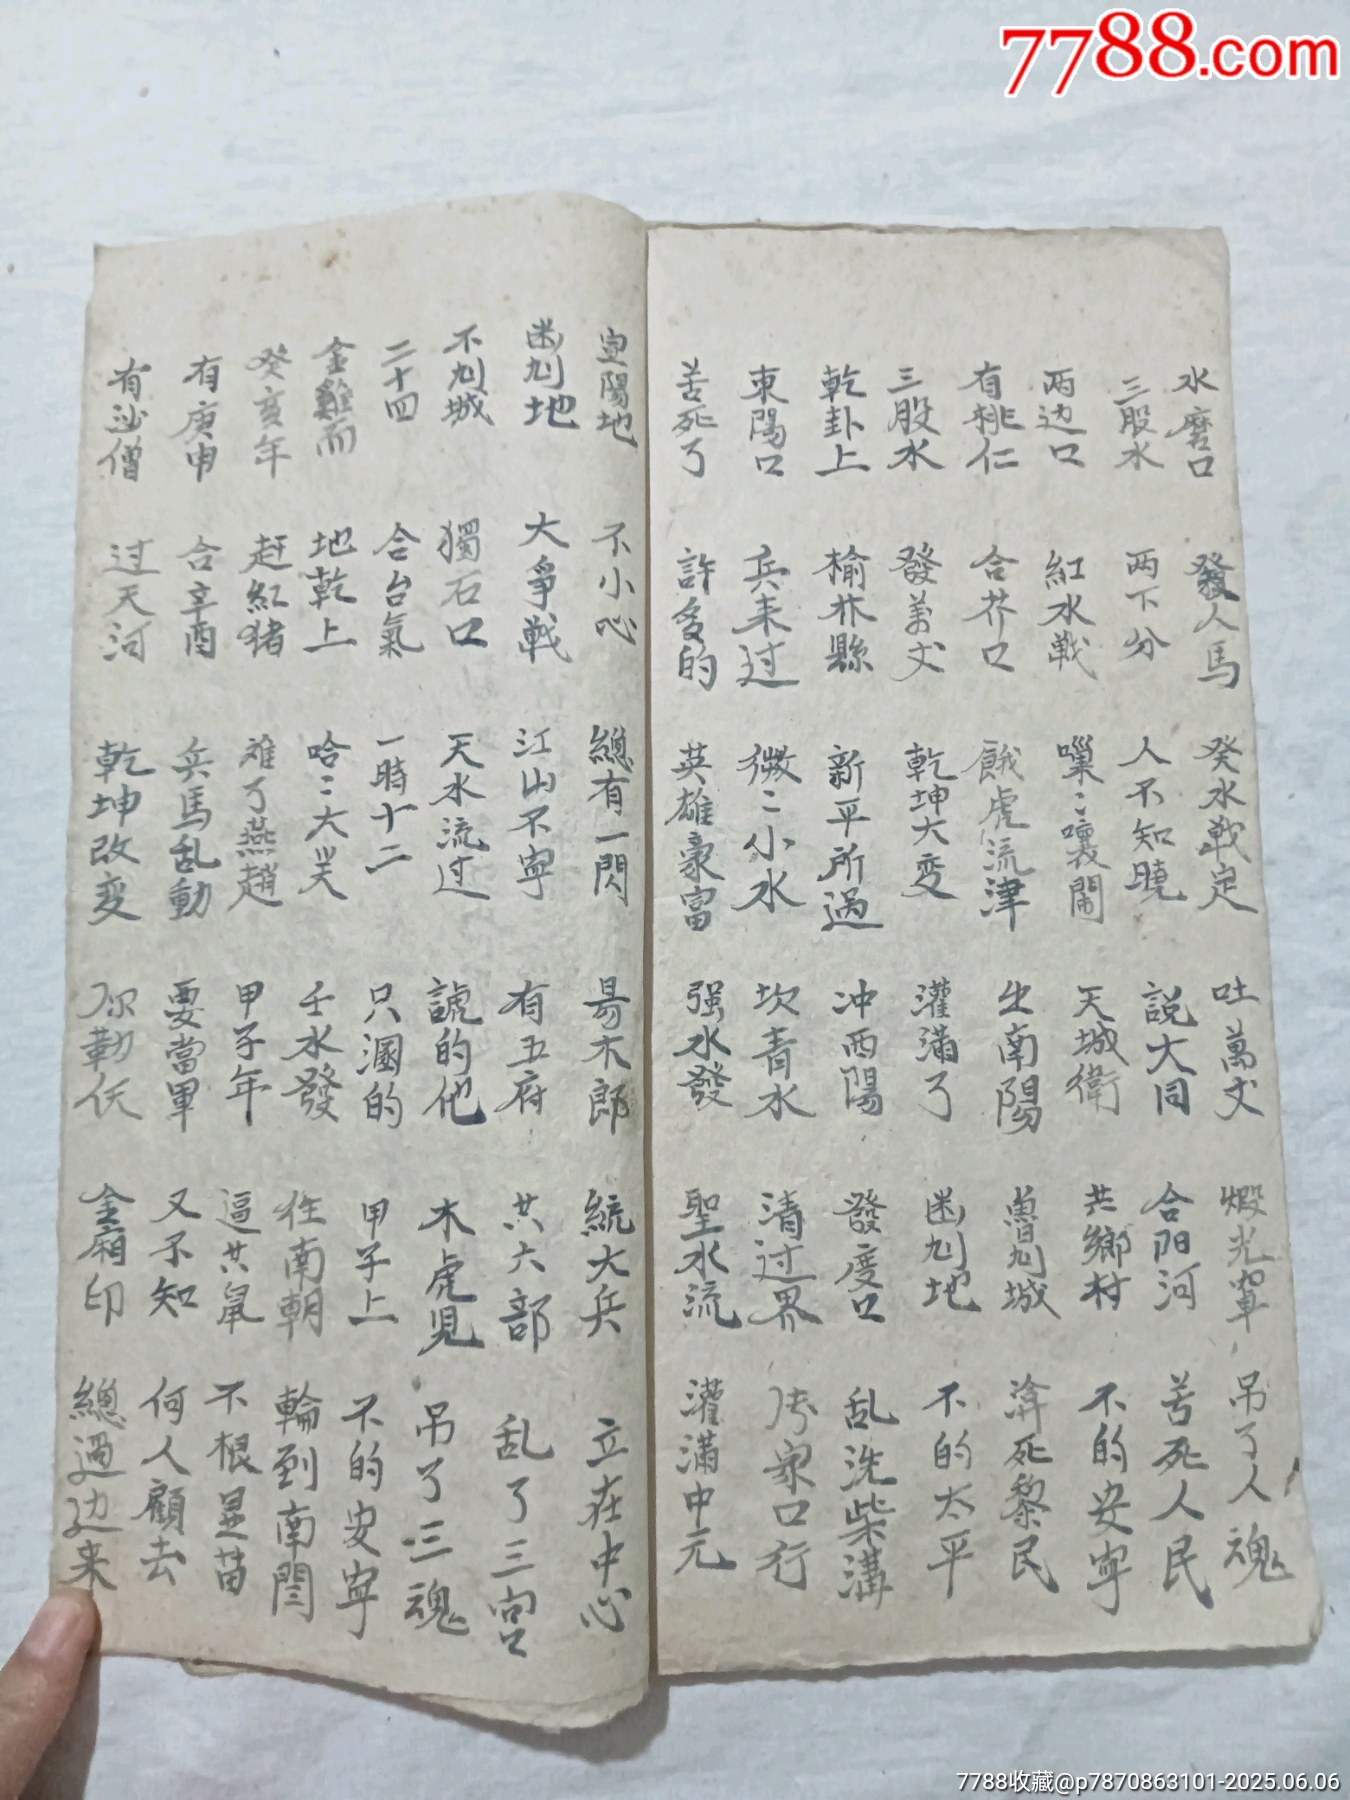 7788.com
水磨口 發人馬 癸水戰定 吐萬丈 煅光罩 吊了人魂
三股水 两下分 人不知曉 説大同 合阳河 苦死人民
两边口 紅水戰 嚷鬧 天城衛 共鄉村 不的安寧
有桃仁 合芥口 餓虎流津 出南陽 魯刘城 渰死黎民
三股水 發萬丈 乾坤大变 灌滿了 困刘地 不的太平
乾卦上 榆林縣 新平所過 冲西陽 發度口 乱洗柴溝
東陽口 兵來过 微〻小水 坎青水 清过界 家口行
苦死了 許多的 英雄豪富 强水發 聖水流 灌滿中元
宣陽地 不小心 總有一閃 木郎 統大兵 立在中心
困刘地 大爭戰 江山不寧 有五府 共六部 乱了三宫
不刘城 獨石口 天水流过 諕的他 木虎見 吊了三魂
二十四 合台氣 一時十二 只溷的 甲子上 不的安寧
金雞而 地乾上 哈〻大笑 壬水發 往南朝 輪到南閻
癸亥年 赶紅猪 难了燕趙 甲子年 逼共鼠 不根是苗
有庚申 合辛酉 兵馬乱動 要當軍 又不知 何人顧去
有沙僧 过天河 乾坤改变 弥勒 金廂印 總過边来
7788收藏@p7870863101-2025.06.06